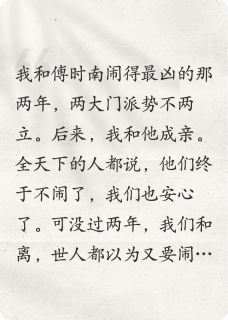 我和傅时南闹得最凶的那
两年，两大门派势不两
立。后来，我和他成亲。
全天下的人都说，他们终
于不闹了，我们也安心
了。可没过两年，我们和
离，世人都以为又要闹…